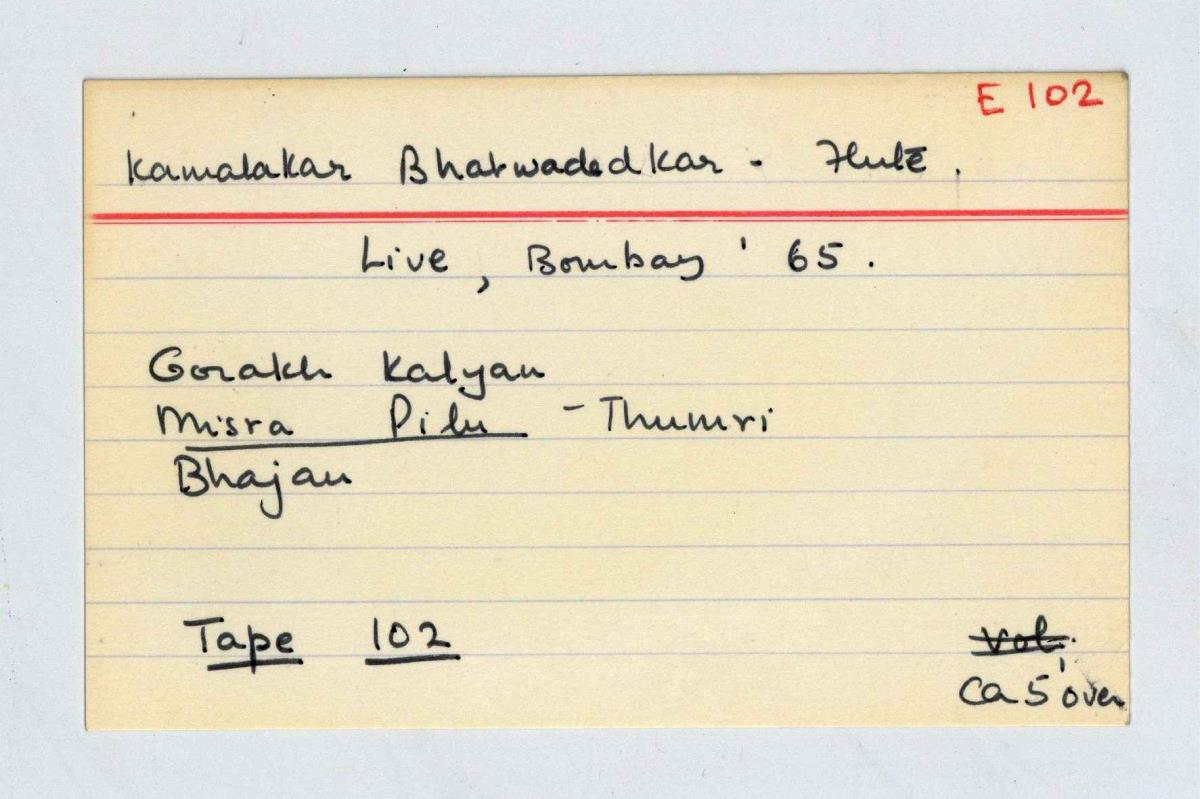 E 102
Kamalakar Bhatwadedkar - Flute.
Live, Bombay '65.
Gorakh Kalyan
Misra Pilu - Thumri
Bhajan
Tape 102
Vol.
Ca 5' over